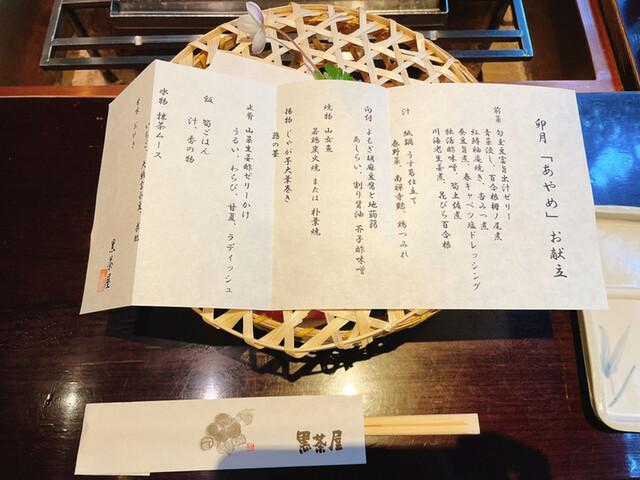 卯月 「あやめ」 お献立
前菜 勾玉豆富旨出汁ゼリー
青菜浸し、百合根梅ノ尾煮
紅鱒柚庵焼き、香みつ煮
蚕豆旨煮、春キャベツ塩ドレッシング
独活酢味噌、筍土佐煮
川海老生姜煮、花びら百合根
汁 紙鍋 うす葛仕立て
春野菜、南禅寺麩、鶏つみれ
向付 よもぎ胡麻豆腐と地蒟蒻
あしらい、割り醤油 芥子酢味噌
焼物 山女魚
若鶏炭火焼 または 朴葉焼
揚物 じゃが芋大葉巻き
蕗の薹
止肴 山菜生姜酢ゼリーかけ
うるい、わらび、甘夏、ラディッシュ
飯 筍ごはん
汁 香の物
水物 抹茶ムース
黒茶屋
黒茶屋